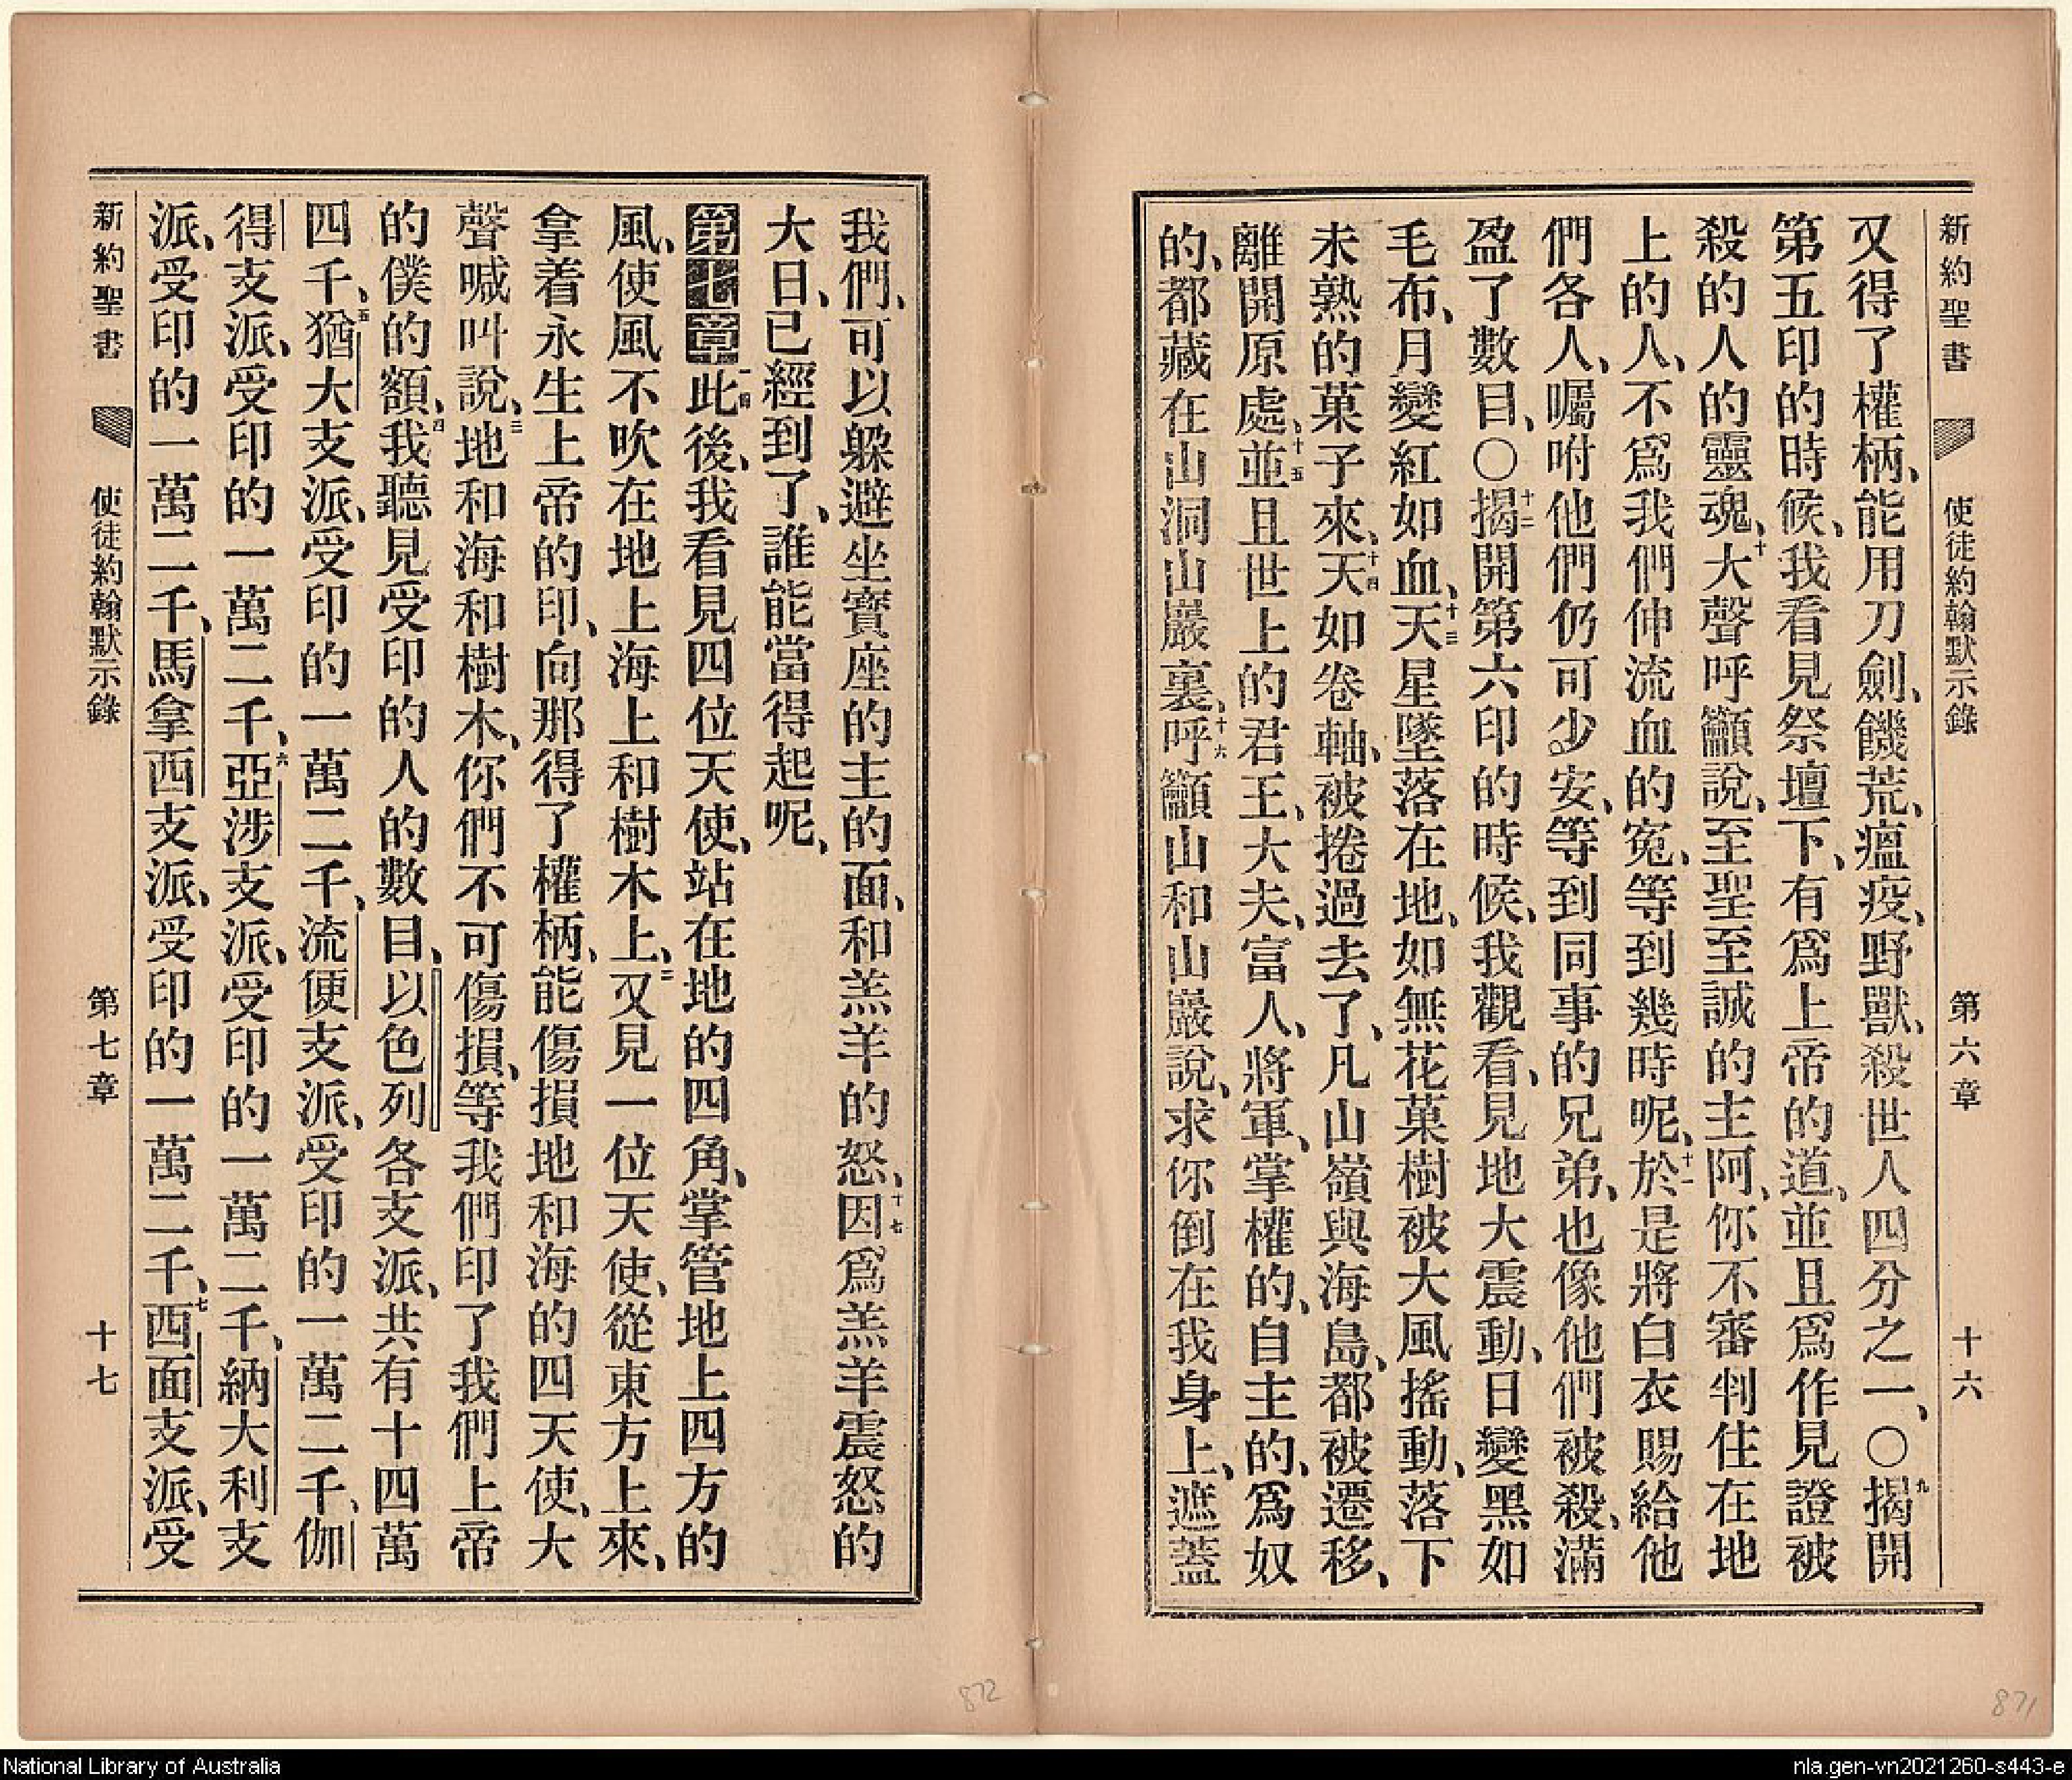 新約聖書 使徒約翰默示錄 第六章 十六
又得了權柄、能用刀劍、饑荒、瘟疫、野獸、殺世人四分之一、〇九揭開
第五印的時候、我看見祭壇下、有爲上帝的道、並且爲作見證被
殺的人的靈魂、十大聲呼籲說、至聖至誠的主阿、你不審判住在地
上的人、不爲我們伸流血的寃、等到幾時呢、十一於是將白衣賜給他
們各人、囑咐他們仍可少安、等到同事的兄弟、也像他們被殺、滿
盈了數目、〇十二揭開第六印的時候、我觀看、見地大震動、日變黑如
毛布、月變紅如血、十三天星墜落在地、如無花菓樹被大風搖動、落下
未熟的菓子來、十四天如卷軸、被捲過去了、凡山嶺與海島、都被遷移、
離開原處、十五並且世上的君王、大夫、富人、將軍、掌權的、自主的、爲奴
的、都藏在山洞山巖裏、十六呼籲山和山巖說、求你倒在我身上、遮蓋
我們、可以躱避坐寶座的主的面、和羔羊的怒、十七因爲羔羊震怒的
大日、已經到了、誰能當得起呢、
第七章一此後、我看見四位天使、站在地的四角、掌管地上四方的
風、使風不吹在地上海上和樹木上、二又見一位天使、從東方上來、
拿着永生上帝的印、向那得了權柄、能傷損地和海的四天使、大
聲喊叫說、三地和海和樹木、你們不可傷損、等我們印了我們上帝
的僕的額、四我聽見受印的人的數目、以色列各支派、共有十四萬
四千、五猶大支派、受印的一萬二千、流便支派、受印的一萬二千、伽
得支派、受印的一萬二千、六亞涉支派、受印的一萬二千、納大利支
派、受印的一萬二千、馬拿西支派、受印的一萬二千、七西面支派、受
新約聖書 使徒約翰默示錄 第七章 十七
872
871
National Library of Australia
nla.gen-vn2021260-s443-e